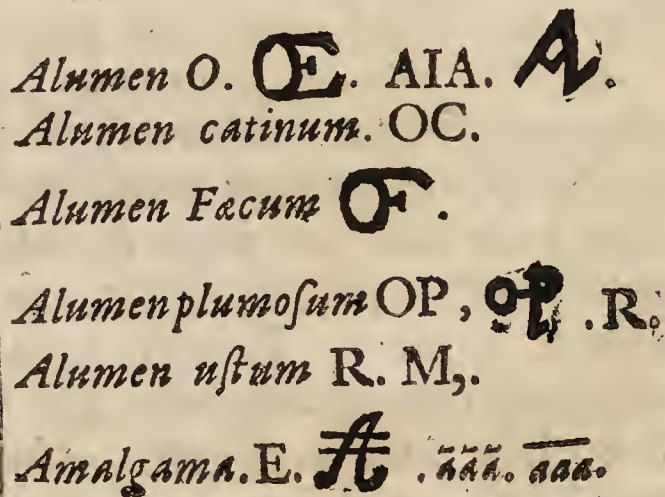 Alumen O. Œ. AIA.
Alumen catinum. OC.
Alumen Fæcum
Alumen plumoſum OP, . R.
Alumen uſtum R. M,.
Amalgama. E. . ããã. aaa.